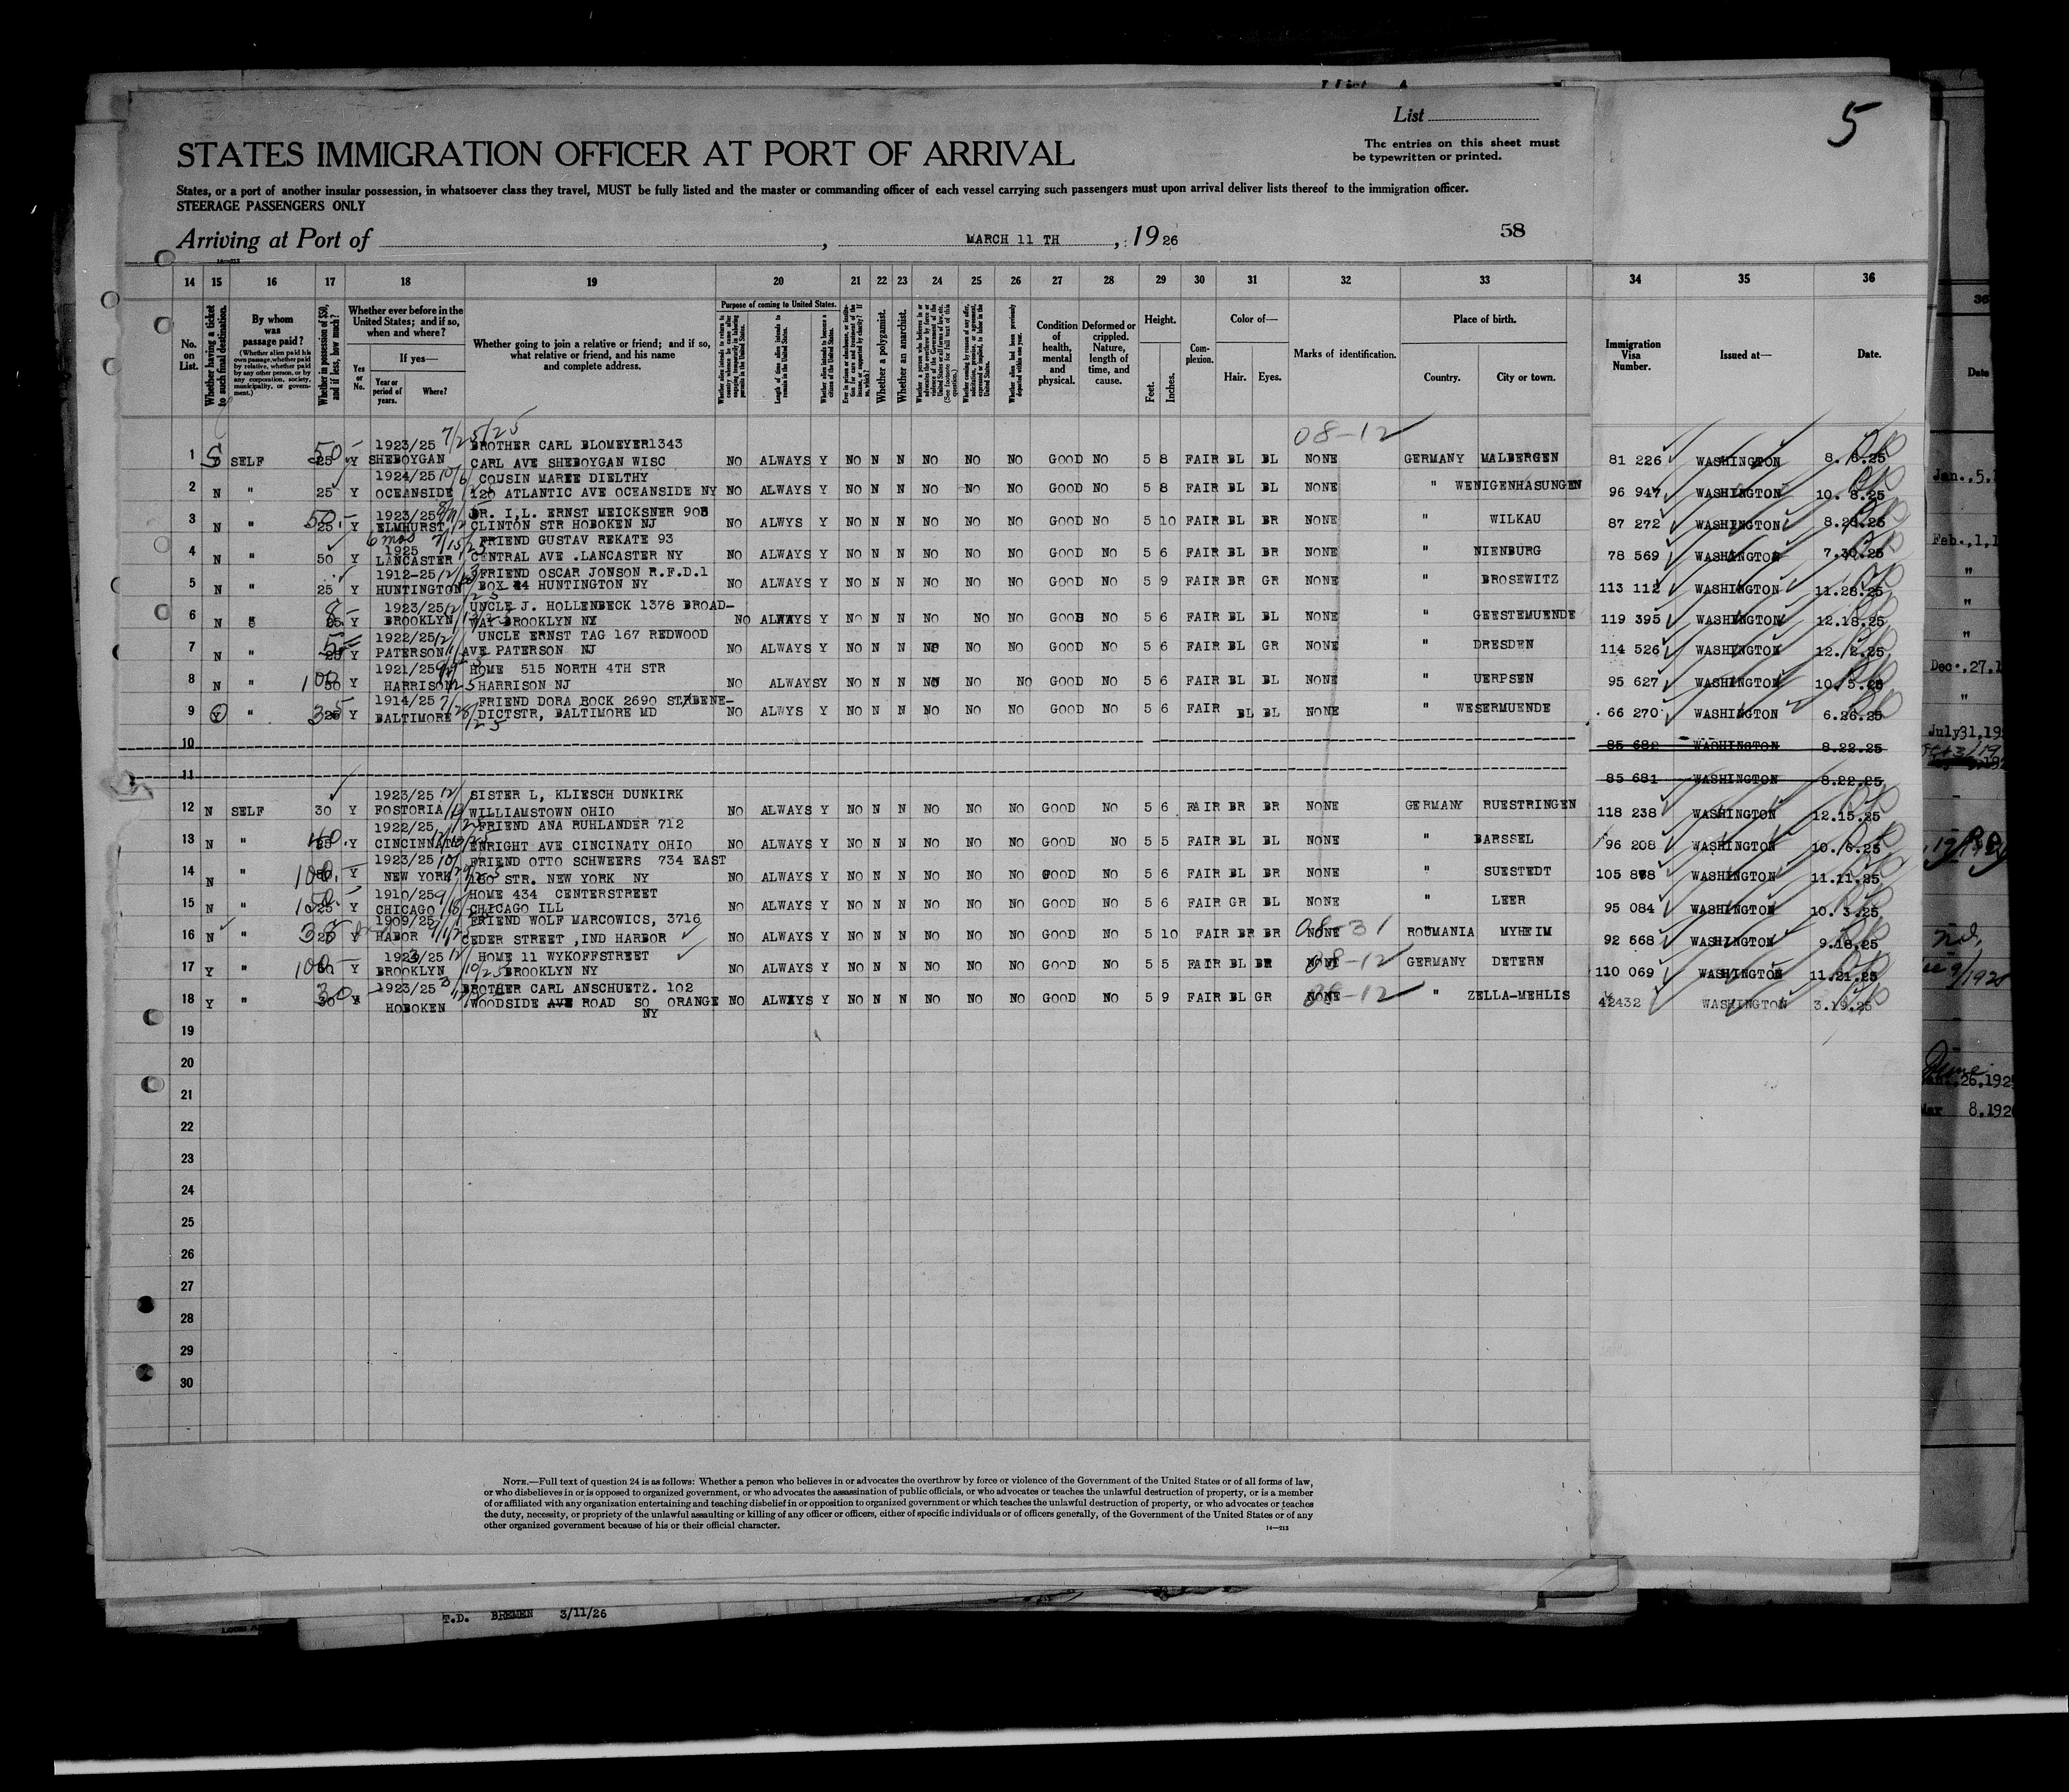 List
5
The entries on this sheet must
be typewritten or printed.
STATES IMMIGRATION OFFICER AT PORT OF ARRIVAL
States, or a port of another insular possession, in whatsoever class they travel, MUST be fully listed and the master or commanding officer of each vessel carrying such passengers must upon arrival deliver lists thereof to the immigration officer.
STEERAGE PASSENGERS ONLY
Arriving at Port of , MARCH 11 TH , 1926 58
14 15 16 17 18 19 20 21 22 23 24 25 26 27 28 29 30 31 32 33 34 35 36
No. on List.
Whether having a ticket to such final destination.
By whom was passage paid?
(Whether alien paid his own passage, whether paid by relative, whether paid by any other person, or by any corporation, society, municipality, or government.)
Whether in possession of $50, and if less, how much?
Whether ever before in the United States; and if so, when and where?
If yes—
Yes or No.
Year or period of years.
Where?
Whether going to join a relative or friend; and if so, what relative or friend, and his name and complete address.
Purpose of coming to United States.
Length of time alien intends to remain in the United States.
Whether alien intends to become a citizen of the United States.
Whether a polygamist.
Whether an anarchist.
Condition of health, mental and physical.
Deformed or crippled. Nature, length of time, and cause.
Height.
Feet. Inches.
Complexion.
Color of—
Hair. Eyes.
Marks of identification.
Place of birth.
Country. City or town.
Immigration Visa Number.
Issued at—
Date.
1923/25 7/25/25 BROTHER CARL BLOMEYER1343 08-12
1 SELF 50 Y SHEBOYGAN CARL AVE SHEBOYGAN WISC NO ALWAYS Y NO N N NO NO NO GOOD NO 5 8 FAIR BL BL NONE GERMANY MALBERGEN 81 226 WASHINGTON 8. 8.25
1924/25 COUSIN MARIE DIELTHY
2 N " 25 Y OCEANSIDE 120 ATLANTIC AVE OCEANSIDE NY NO ALWAYS Y NO N N NO NO NO GOOD NO 5 8 FAIR BL BL NONE " WENIGENHASUNGEN 96 947 WASHINGTON 10. 8.25
1923/25 DR. I.L. ERNST MEICKSNER 908
3 N " 50 Y ELMHURST CLINTON STR HOBOKEN NJ NO ALWYS Y NO N N NO NO NO GOOD NO 5 10 FAIR BL BR NONE " WILKAU 87 272 WASHINGTON 8.28.25
6 mos 1925 7/15/25 FRIEND GUSTAV REKATE 93
4 N " 50 Y LANCASTER CENTRAL AVE .LANCASTER NY NO ALWAYS Y NO N N NO NO NO GOOD NO 5 6 FAIR BL BR NONE " NIENBURG 78 569 WASHINGTON 7.30.25
1912-25 FRIEND OSCAR JONSON R.F.D.1
5 N " 25 Y HUNTINGTON BOX 24 HUNTINGTON NY NO ALWAYS Y NO N N NO NO NO GOOD NO 5 9 FAIR BR GR NONE " BROSEWITZ 113 112 WASHINGTON 11.28.25
1923/25 UNCLE J. HOLLENBECK 1378 BROAD-
6 N " 8 Y BROOKLYN WAY BROOKLYN NY NO ALWAYS Y NO N N NO NO NO GOOD NO 5 6 FAIR BL BL NONE " GEESTEMUENDE 119 395 WASHINGTON 12.18.25
1922/25 UNCLE ERNST TAG 167 REDWOOD
7 N " 5 Y PATERSON AVE PATERSON NJ NO ALWAYS Y NO N N NO NO NO GOOD NO 5 6 FAIR BL GR NONE " DRESDEN 114 526 WASHINGTON 12. 2.25
1921/25 HOME 515 NORTH 4TH STR
8 N " 100 Y HARRISON HARRISON NJ NO ALWAYSY NO N N NO NO NO GOOD NO 5 6 FAIR BL BL NONE " UERPSEN 95 627 WASHINGTON 10.5.25
1914/25 FRIEND DORA BOCK 2690 ST/BENE-
9 Y " 35 Y BALTIMORE DICTSTR, BALTIMORE MD NO ALWYS Y NO N N NO NO NO GOOD NO 5 6 FAIR BL BL NONE " WESERMUENDE 66 270 WASHINGTON 6.26.25
10 85 682 WASHINGTON 8.22.25
11 85 681 WASHINGTON 8.22.25
1923/25 SISTER L, KLIESCH DUNKIRK
12 N SELF 30 Y FOSTORIA WILLIAMSTOWN OHIO NO ALWAYS Y NO N N NO NO NO GOOD NO 5 6 FAIR BR BR NONE GERMANY RUESTRINGEN 118 238 WASHINGTON 12.15.25
1922/25 FRIEND ANA RUHLANDER 712
13 N " 40 Y CINCINNATI ENRIGHT AVE CINCINATY OHIO NO ALWAYS Y NO N N NO NO NO GOOD NO 5 5 FAIR BL BL NONE " BARSSEL 96 208 WASHINGTON 10.6.25
1923/25 FRIEND OTTO SCHWEERS 734 EAST
14 N " 100 Y NEW YORK 160 STR. NEW YORK NY NO ALWAYS Y NO N N NO NO NO GOOD NO 5 6 FAIR BL BR NONE " SUESTEDT 105 878 WASHINGTON 11.11.25
1910/25 HOME 434 CENTERSTREET
15 N " 50 Y CHICAGO CHICAGO ILL NO ALWAYS Y NO N N NO NO NO GOOD NO 5 6 FAIR GR BL NONE " LEER 95 084 WASHINGTON 10. 3.25
1909/25 FRIEND WOLF MARCOWICS, 3716 08-31
16 N " 35 Y HABOR CEDER STREET ,IND HARBOR NO ALWAYS Y NO N N NO NO NO GOOD NO 5 10 FAIR BR BR NONE ROUMANIA MYHEIM 92 668 WASHINGTON 9.18.25
1923/25 HOME 11 WYKOFFSTREET 08-12
17 Y " 100 Y BROOKLYN BROOKLYN NY NO ALWAYS Y NO N N NO NO NO GOOD NO 5 5 FAIR BL BR NONE GERMANY DETERN 110 069 WASHINGTON 11.21.25
1923/25 BROTHER CARL ANSCHUETZ. 102 08-12
18 Y " 30 Y HOBOKEN WOODSIDE AVE ROAD SO ORANGE NY NO ALWAYS Y NO N N NO NO NO GOOD NO 5 9 FAIR BL GR NONE " ZELLA-MEHLIS 42432 WASHINGTON 3.19.25
19
20
21
22
23
24
25
26
27
28
29
30
NOTE.—Full text of question 24 is as follows: Whether a person who believes in or advocates the overthrow by force or violence of the Government of the United States or of all forms of law,
or who disbelieves in or is opposed to organized government, or who advocates the assassination of public officials, or who advocates or teaches the unlawful destruction of property, or is a member
of or affiliated with any organization entertaining and teaching disbelief in or opposition to organized government or which teaches the unlawful destruction of property, or who advocates or teaches
the duty, necessity, or propriety of the unlawful assaulting or killing of any officer or officers, either of specific individuals or of officers generally, of the Government of the United States or of any
other organized government because of his or their official character.
14—213
T.D. BREMEN 3/11/26